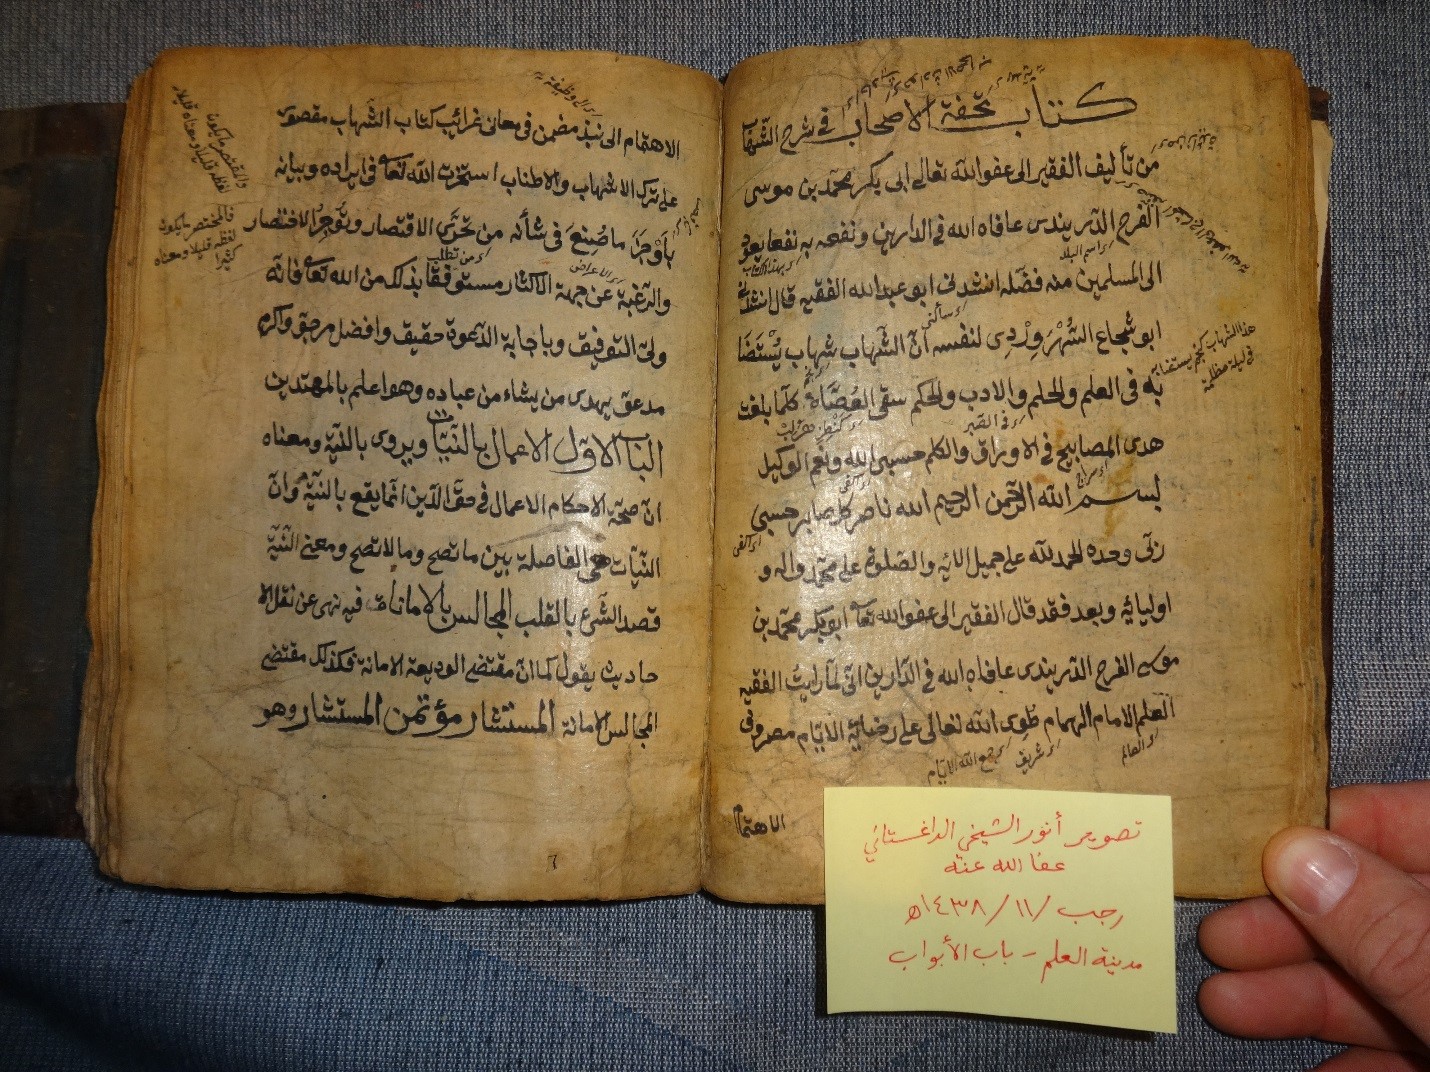 كتاب تحفة الاصحاب في شرح الشهاب
من تأليف الفقير الى عفو الله تعالى ابى بكر محمد بن موسى
الفرج الدربندى عافاه الله في الدارين ونفعه به نفعا يعود
الى المسلمين منه فضله انشدنى ابو عبد الله الفقيه قال انشدنى
ابو شجاع السُّهْرَوِرْدِى لنفسه انّ الشّهاب شهاب يُسْتَضَا
به فى العلم والحلم والادب والحكم سقى القُضَاة كلما بلغت
هدى المصابيح فى الاوراق والكلم حسبى الله ونعم الوكيل
بسم الله الرحمن الرحيم الله ناصر كل صابر حسبى
ربّى وحده الحمد لله على جميل الائه والصلوة على محمّد واله و
اوليائه وبعد فقد قال الفقير الى عفو الله تعا ابو بكر محمّد بن
موسى الفرج الدربندى عافاه الله في الدّارين انّى لمّا رايت الفقيه
العلم الامام الهمام طوى الله تعالى على رضائه الايّام مصروفى
اى العالم
اى شريف
اى جمع الله الايّام
اى اسم البلد
اى بهذا الكتاب
اى فى القبر
هذا الشهاب كنجم يستضاء
فى ليلة مظلمة
الاهتمام
الاهتمام الى نبذ مضمن فى معانى غرائب كتاب الشّهاب مقصورة
على ترك الاشهاب والاطناب استخرت الله تعالى فى ايراده وبيانه
بِاَوْجَزِ ما صُنِعَ فى شأنه من تحرّى الاقتصار وتوخّى الاختصار
والرّغبة عن جهة الاكثار مستوفقا بذلك من الله تعالى فانّه
ولىّ التوفيق وباجابة الدّعوة حقيق وافضل مرجوّ واكرم
مدعوّ يهدى من يشاء من عباده وهو اعلم بالمهتدين
الباب الاوّل الاعمال بالنّيّات ويروى بالنّيّة ومعناه
انّ صحّة الاحكام الاعمال فى حقّ الدّين انّما يقع بالنّيّة وانّ
النّيّات هى الفاصلة بين ما تصح وما لا تصح ومعنى النّيّة
قصد الشّرع بالقلب المجالس بالامانات فيه نهى عن نقل الا
حاديث يقول كما انّ مقتضى الوديعة الامانة فكذلك مقتضى
المجالس الامانة المستشار مؤتمن المستشار وهو
اى الى وظيفة
اى من تطلب
اى الاعراض
فالمختصر ما يكون
لفظه قليلا ومعناه
كثيرا
٦
تصوير أنور الشيخي الداغستاني
عفا الله عنه
رجب /١١/ ١٤٣٨ھ
مدينة العلم - باب الأبواب